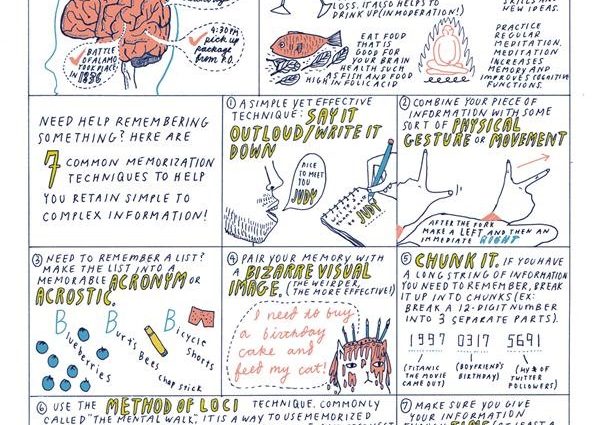 4:30PM
pick up
package
from P.O.
BATTLE
OF ALAMO
TOOK PLACE
IN 1836
LOSS. IT ALSO HELPS TO
DRINK UP (IN MODERATION!)
EAT FOOD
THAT IS
GOOD FOR
YOUR BRAIN
HEALTH SUCH
AS FISH AND FOOD
HIGH IN FOLIC ACID
SKILLS AND
NEW IDEAS.
PRACTICE
REGULAR
MEDITATION.
MEDITATION
INCREASES
MEMORY AND
IMPROVES COGNITIVE
FUNCTIONS.
NEED HELP REMEMBERING
SOMETHING? HERE ARE
7 COMMON MEMORIZATION
TECHNIQUES TO HELP
YOU RETAIN SIMPLE TO
COMPLEX INFORMATION!
① A SIMPLE YET EFFECTIVE
TECHNIQUE: SAY IT
OUTLOUD/WRITE IT
DOWN
NICE
TO MEET
YOU
JUDY
JUDY
② COMBINE YOUR PIECE OF
INFORMATION WITH SOME
SORT OF PHYSICAL
GESTURE OR MOVEMENT
AFTER THE FORK
MAKE A LEFT AND THEN AN
IMMEDIATE RIGHT
③ NEED TO REMEMBER A LIST?
MAKE THE LIST INTO A
MEMORABLE ACRONYM OR
ACROSTIC.
Blueberries
Burt's Bees
chap stick
Bicycle
Shorts
④ PAIR YOUR MEMORY WITH
A BIZARRE VISUAL
IMAGE. (THE WEIRDER,
THE MORE EFFECTIVE!)
I need to buy
a birthday
cake and
feed my cat!
⑤ CHUNK IT. IF YOU HAVE
A LONG STRING OF INFORMATION
YOU NEED TO REMEMBER, BREAK
IT UP INTO CHUNKS (EX:
BREAK A 12-DIGIT NUMBER
INTO 3 SEPARATE PARTS).
1997 0317 5691
(TITANIC
THE MOVIE
CAME OUT)
(BOYFRIEND'S
BIRTHDAY)
(MY # OF
TWITTER
FOLLOWERS)
⑥ USE THE METHOD OF LOCI TECHNIQUE. COMMONLY
CALLED "THE MENTAL WALK", IT IS A WAY TO USE MEMORIZED
⑦ MAKE SURE YOU GIVE
YOUR INFORMATION